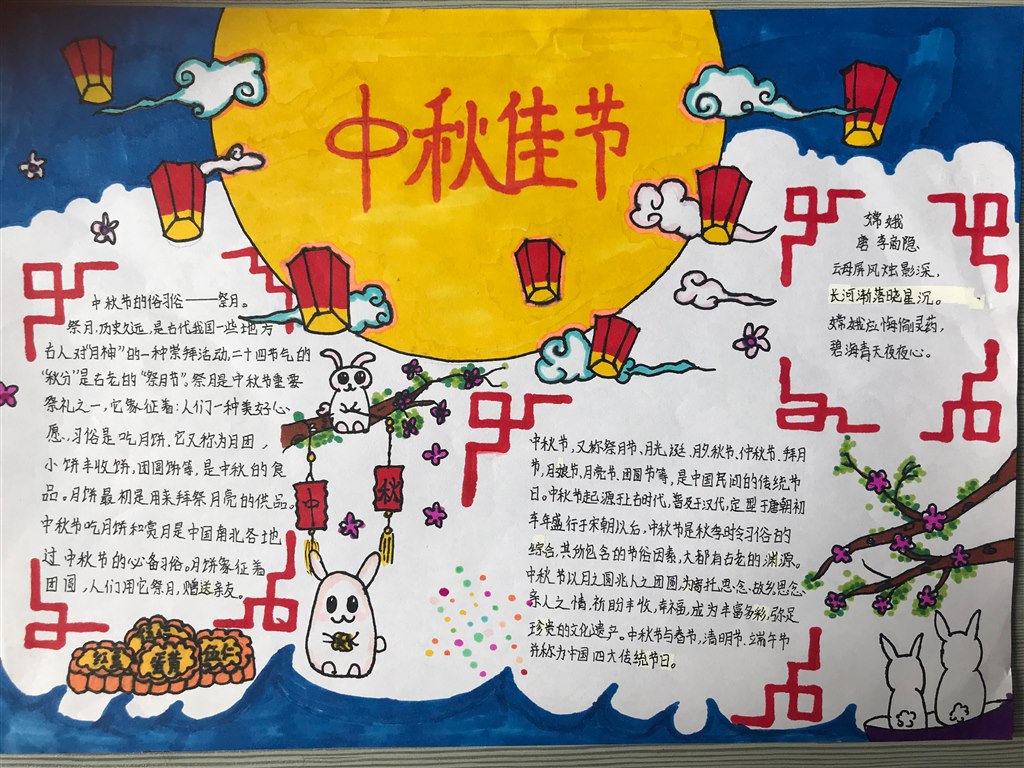 中秋佳节
中秋节的俗习俗——祭月。
祭月,历史久远,是古代我国一些地方
古人对"月神"的一种崇拜活动,二十四节气的
"秋分"是古老的"祭月节"。祭月是中秋节重要
祭礼之一,它象征着:人们一种美好心
愿。习俗是吃月饼,它又称为月团,
小饼丰收饼,团圆饼等,是中秋的食
品。月饼最初是用来拜祭月亮的供品。
中秋节吃月饼和赏月是中国南北各地
过中秋节的必备习俗。月饼象征着
团圆,人们用它祭月,赠送亲友。
嫦娥
唐 李商隐
云母屏风烛影深,
长河渐落晓星沉。
嫦娥应悔偷灵药,
碧海青天夜夜心。
中
秋
中秋节,又称祭月节、月光诞、月夕、秋节、仲秋节、拜月
节,月娘节、月亮节、团圆节等,是中国民间的传统节
日。中秋节起源于上古时代,普及于汉代,定型于唐朝初
年盛行于宋朝以后。中秋节是秋季时令习俗的
综合,其所包含的节俗因素,大都有古老的渊源。
中秋节以月之圆兆人之团圆,为寄托思念故乡思念
亲人之情,祈盼丰收,幸福,成为丰富多彩,弥足
珍贵的文化遗产。中秋节与春节,清明节、端午节
并称为中国四大传统节日。
红豆
蛋黄
伍仁